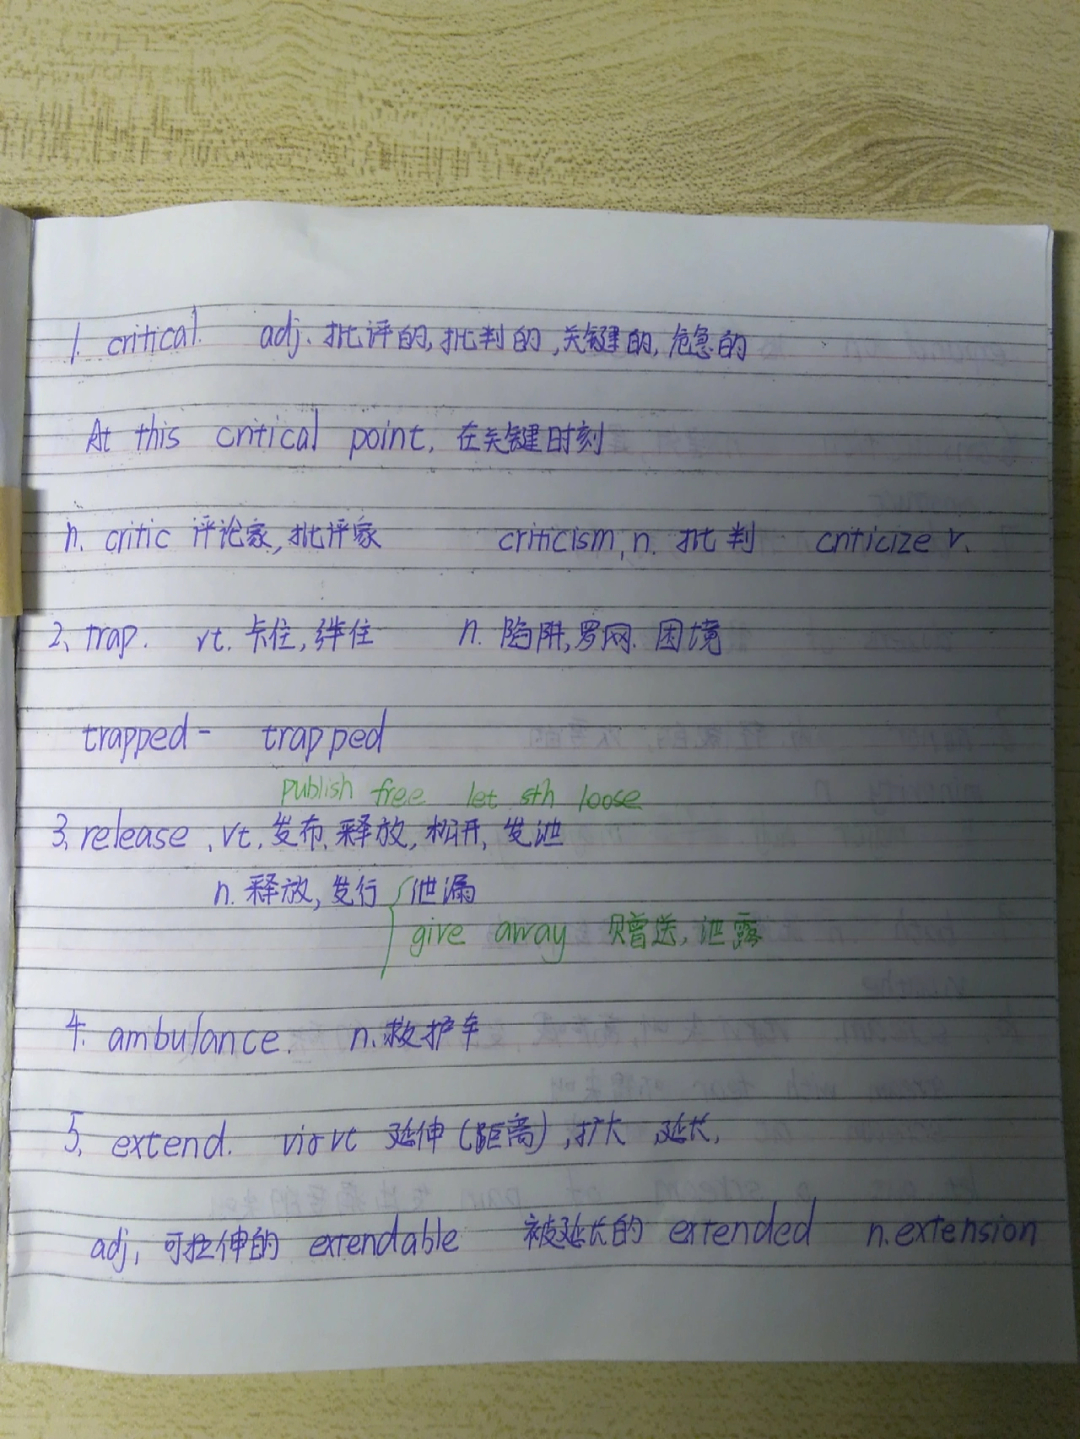 1. critical. adj. 批评的,批判的,关键的,危急的
At this critical point, 在关键时刻
n. critic 评论家,批评家 criticism, n. 批判 criticize v.
2、trap. vt. 卡住,绊住 n. 陷阱,罗网. 困境
trapped - trapped
publish free let sth loose
3、release, vt. 发布,释放,松开,发泄
n. 释放,发行 泄漏
give away 赠送,泄露
4. ambulance. n. 救护车
5、extend. vi or vt 延伸(距离),扩大 延长,
adj, 可拉伸的 extendable 被延长的 extended n. extension